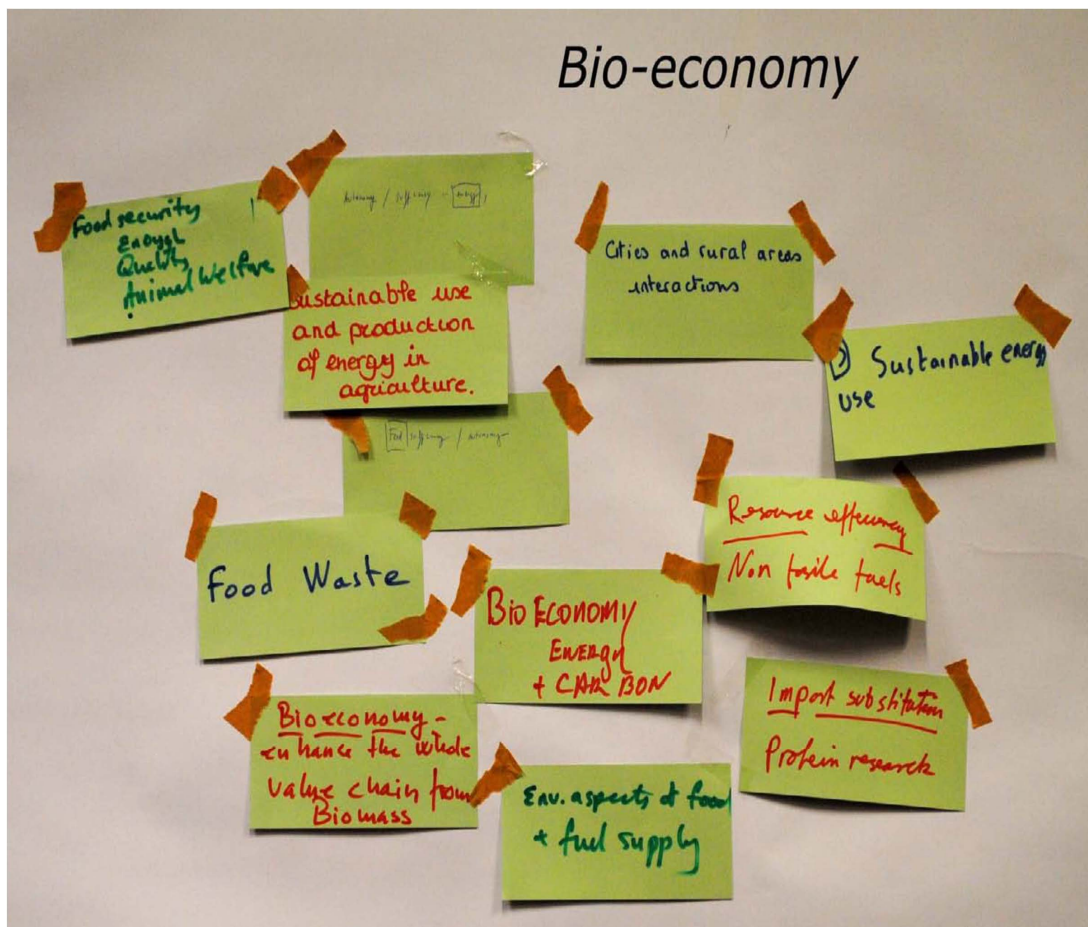 Bio-economy
Food security
Enough
Quality
Animal Welfare
Autonomy / Sufficiency - energy
Sustainable use
and production
of energy in
agriculture.
Cities and rural areas
interactions
Sustainable energy
use
Food sufficiency / autonomy
Food Waste
Resource efficiency
Non fosile fuels
BIO ECONOMY
ENERGY
+ CARBON
Import substitution
Protein research
Bioeconomy -
enhance the whole
value chain from
Biomass
Env. aspects of food
+ fuel supply